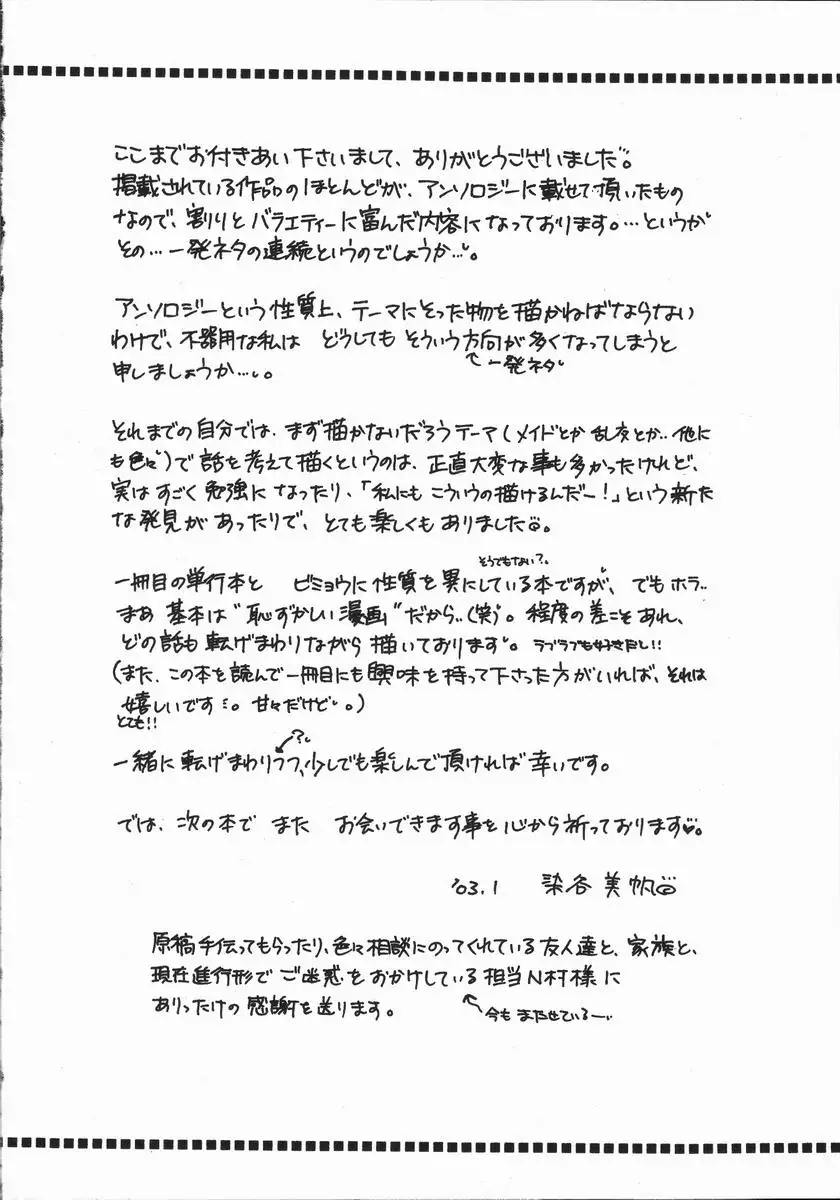 ここまでお付きあい下さいまして、ありがとうございました。
掲載されている作品のほとんどが、アンソロジーに載せて頂いたもの
なので、割りとバラエティーに富んだ内容になっております。…というか
その…一発ネタの連続というのでしょうか…。
アンソロジーという性質上、テーマにそった物を描かねばならない
わけで、不器用な私は どうしても そういう方向が多くなってしまうと
↑一発ネタ
申しましょうか…。
それまでの自分では、まず描かないだろうテーマ(メイドとか乱交とか‥他に
も色々)で話を考えて描くというのは、正直大変な事も多かったけれど、
実はすごく勉強になったり、「私にもこういうの描けるんだー!」という新た
な発見があったりで、とても楽しくもありました。
そうでもない?
一冊目の単行本と ビミョウに性質を異にしている本ですが、でもホラ‥
まあ 基本は"恥ずかしい漫画"だから‥(笑)。程度の差こそあれ、
どの話も転げまわりながら描いております。ラブラブも好きだし!!
(また、この本を読んで一冊目にも興味を持って下さった方がいれば、それは
嬉しいです…。甘々だけど。)
とても!!
?
一緒に転げまわりつつ、少しでも楽しんで頂ければ幸いです。
では、次の本で また お会いできます事を心から祈っております♡。
'03.1 染谷 美帆
原稿手伝ってもらったり、色々相談にのってくれている友人達と、家族と、
現在進行形でご迷惑をおかけしている担当N村様に
ありったけの感謝を送ります。
↖今もまたせている―…